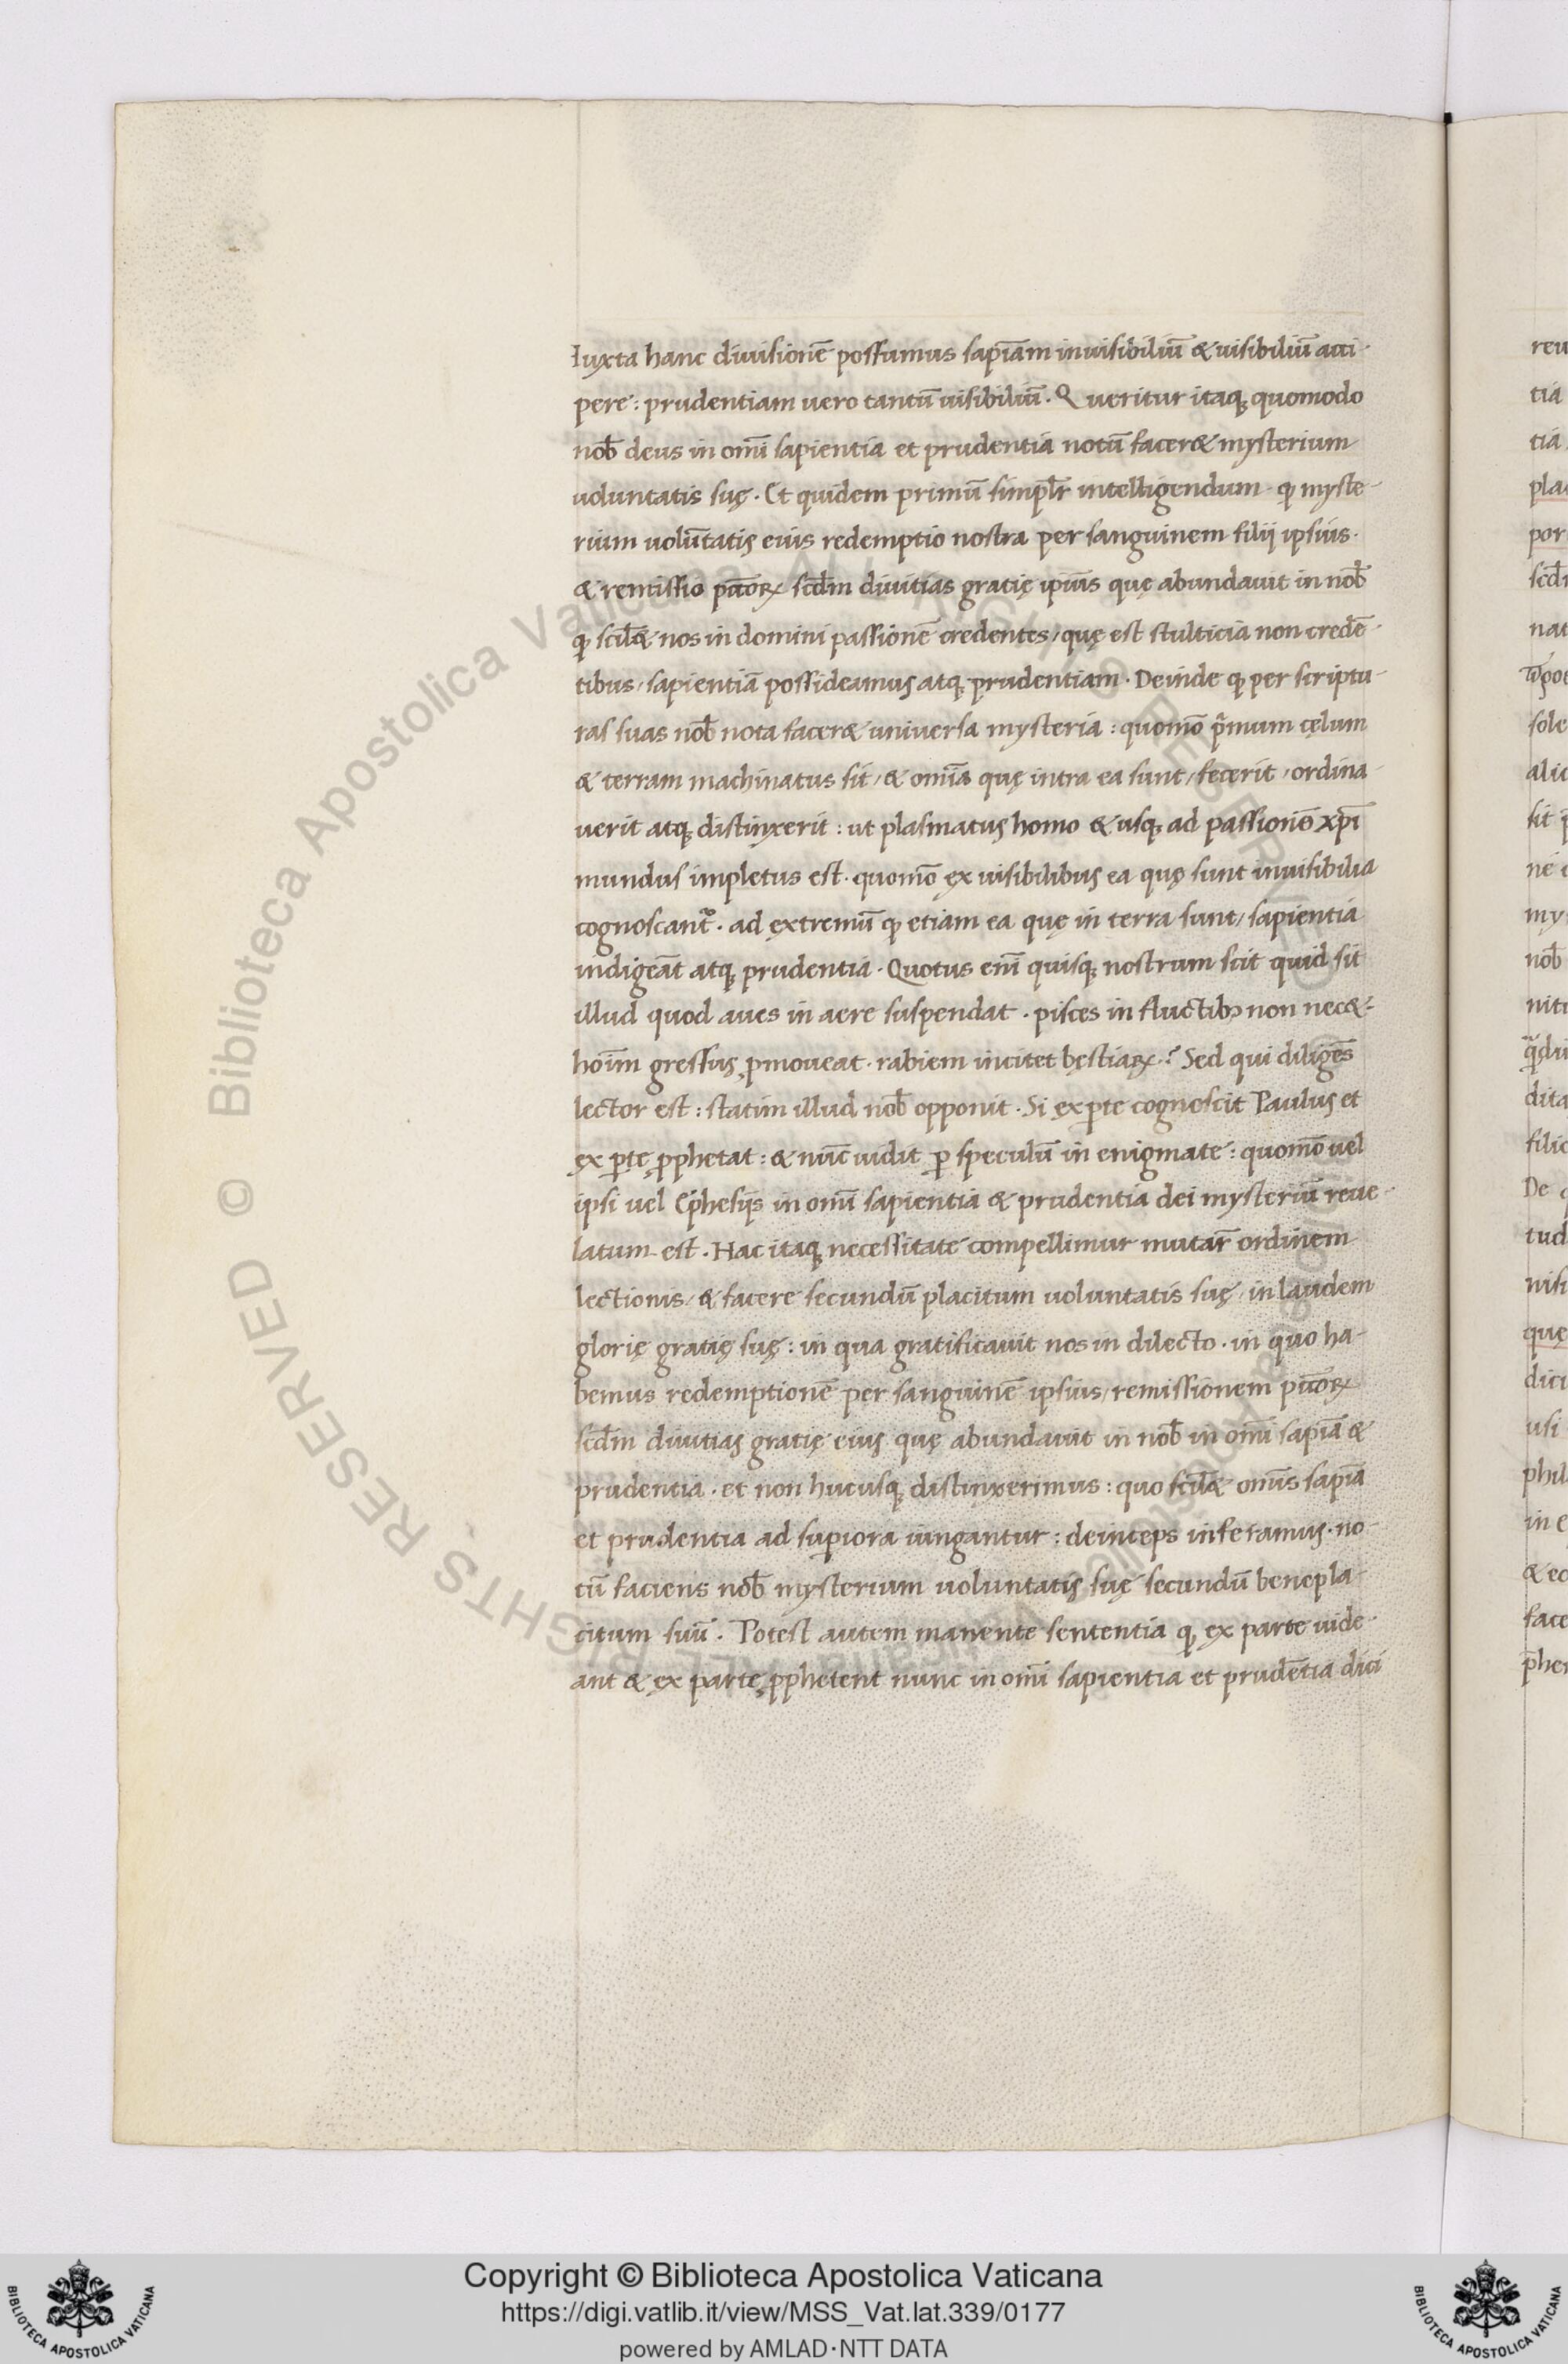 Iuxta hanc diuisionē possumus sapiām inuisibiliū & uisibiliū acci-
pere: prudentiam uero tantū uisibiliū. Queritur itaq; quomodo
nob̄ deus in om̄i sapientia et prudentia notū facer& mysterium
uoluntatis suę. Et quidem primū simpl̄r intelligendum. ꝙ myste-
rium uolūtatis eius redemptio nostra per sanguinem filij ipsius.
& remissio pc̄toꝝ scd̄m diuitias gratię ipīus quę abundauit in nob̄
ꝙ scil& nos in domini passionē credentes, quę est stulticia non credē-
tibus, sapientiā possideamus atq; prudentiam. Deinde ꝙ per scriptu-
ras suas nob̄ nota facer& uniuersa mysteria: quomō p̄mum cęlum
& terram machinatus sit, & om̄ia quę intra ea sunt, fecerit, ordina-
uerit atq; distinxerit: ut plasmatus homo & usq; ad passionē xp̄i
mundus impletus est. quomō ęx uisibilibus ea quę sunt inuisibilia
cognoscant᷑. ad ęxtremū ꝙ etiam ea quę in terra sunt, sapientia
indigeāt atq; prudentia. Quotus enī quisq; nostrum scit quid sit
illud quod aues in aere suspendat. pisces in fluctibꝫ non nec&.
hoīm gressus ꝓmoueat. rabiem incitet bęstiaꝝ.? Sed qui diligēs
lector est: statim illud nob̄ opponit. Si ęx ꝑte cognoscit Paulus et
ęx ꝑte ꝓphetat: & nūc uidit ꝑ speculū in enigmate: quomō uel
ipsi uel Ephesijs in om̄i sapientia & prudentia dei mysteriū reue-
latum est. Hac itaq; necessitate compellimur mutar̄ ordinem
lectionis, & facere secundū placitum uoluntatis suę, in laudem
glorię gratię suę: in qua gratificauit nos in dilecto. in quo ha-
bemus redemptionē per sanguinē ipsius, remissionem pc̄toꝝ
scd̄m diuitias gratię eius quę abundauit in nob̄ in om̄i sapiā &
prudentia. et non hucusq; distinxerimus: quo scil& om̄s sapiā
et prudentia ad suꝑiora iungantur: deinceps inferamus. no-
tū faciens nob̄ mysterium uoluntatis suę secundū benepla-
citum suū. Potest autem manente sententia ꝙ ex parte uide-
ant & ęx parte ꝓphetent nunc in om̄i sapientia et prudētia dici
© Biblioteca Apostolica Vaticana ALL RIGHTS RESERVED
Copyright © Biblioteca Apostolica Vaticana
https://digi.vatlib.it/view/MSS_Vat.lat.339/0177
powered by AMLAD·NTT DATA
BIBLIOTECA APOSTOLICA VATICANA
BIBLIOTECA APOSTOLICA VATICANA